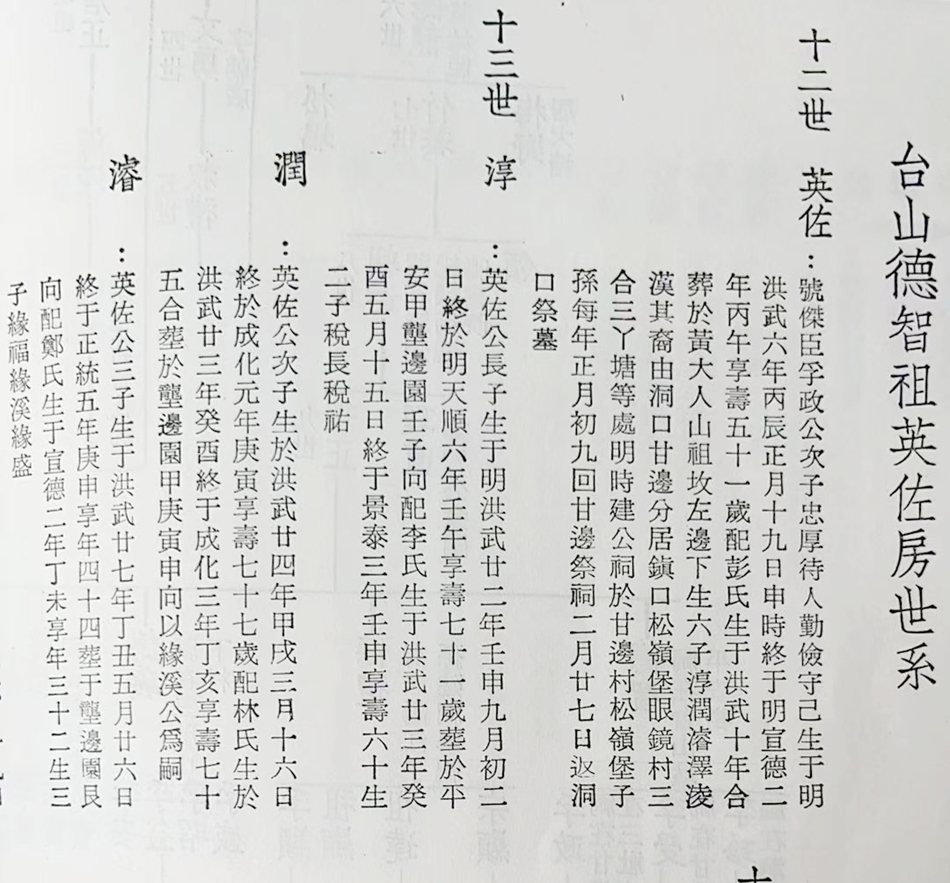 台山德智祖英佐房世系
十二世 英佐：號傑臣孚政公次子忠厚待人勤儉守己生于明
洪武六年丙辰正月十九日申時終于明宣德二
年丙午享壽五十一歲配彭氏生于洪武十年合
葬於黃大人山祖坟左邊下生六子淳潤濬澤淩
漢其裔由洞口甘邊分居鎮口松嶺堡眼鏡村三
合三丫塘等處明時建公祠於甘邊村松嶺堡子
孫每年正月初九回甘邊祭祠二月廿七日返洞
口祭墓
十三世 淳：英佐公長子生于明洪武廿二年壬申九月初二
日終於明天順六年壬午享壽七十一歲塟於平
安甲壟邊園壬子向配李氏生于洪武廿三年癸
酉五月十五日終于景泰三年壬申享壽六十生
二子稅長稅祐
潤：英佐公次子生於洪武廿四年甲戌三月十六日
終於成化元年庚寅享壽七十七歲配林氏生於
洪武廿三年癸酉終于成化三年丁亥享壽七十
五合葬於壟邊園甲庚寅申向以緣溪公爲嗣
濬：英佐公三子生于洪武廿七年丁丑五月廿六日
終于正統五年庚申享年四十四塟于壟邊園艮
向配鄭氏生于宣德二年丁未享年三十二生三
子緣福緣溪緣盛